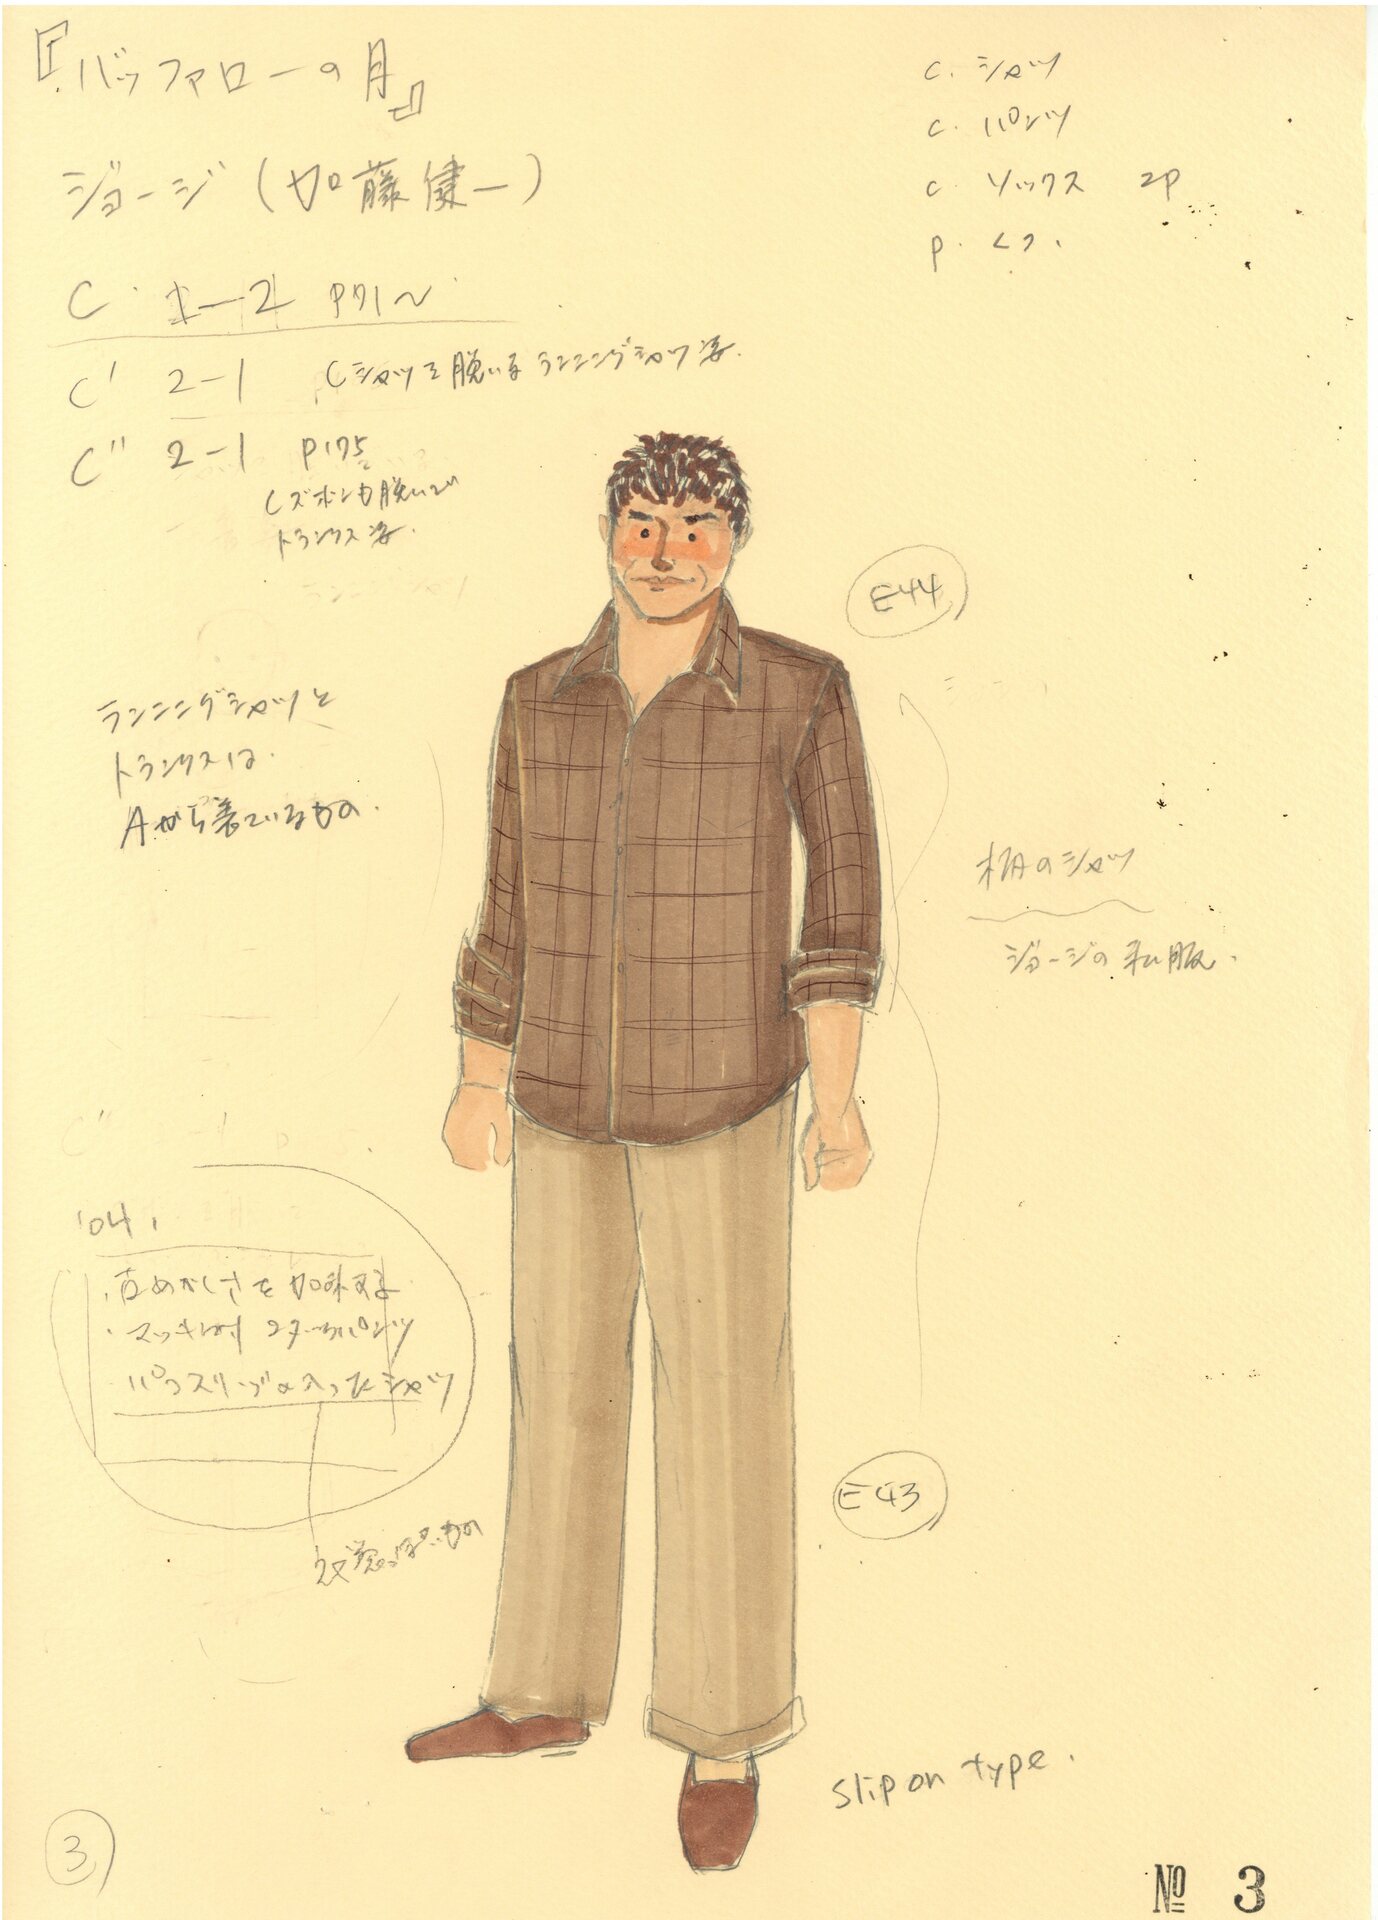 『バッファローの月』
ジョージ(加藤健一)
C. シャツ
C. パンツ
C ソックス 2P
P. くつ.
C. 1-2 P71〜
C' 2-1 Cシャツを脱いでランニングシャツ姿.
C'' 2-1 P175
Cズボンも脱いで
トランクス姿.
E44
ランニングシャツと
トランクスは.
Aから着ているもの.
柄のシャツ
ジョージの私服.
'04,
・古めかしさを加味する
・ 2タックパンツ
・ の入ったシャツ
E43
slip on type.
3
№ 3